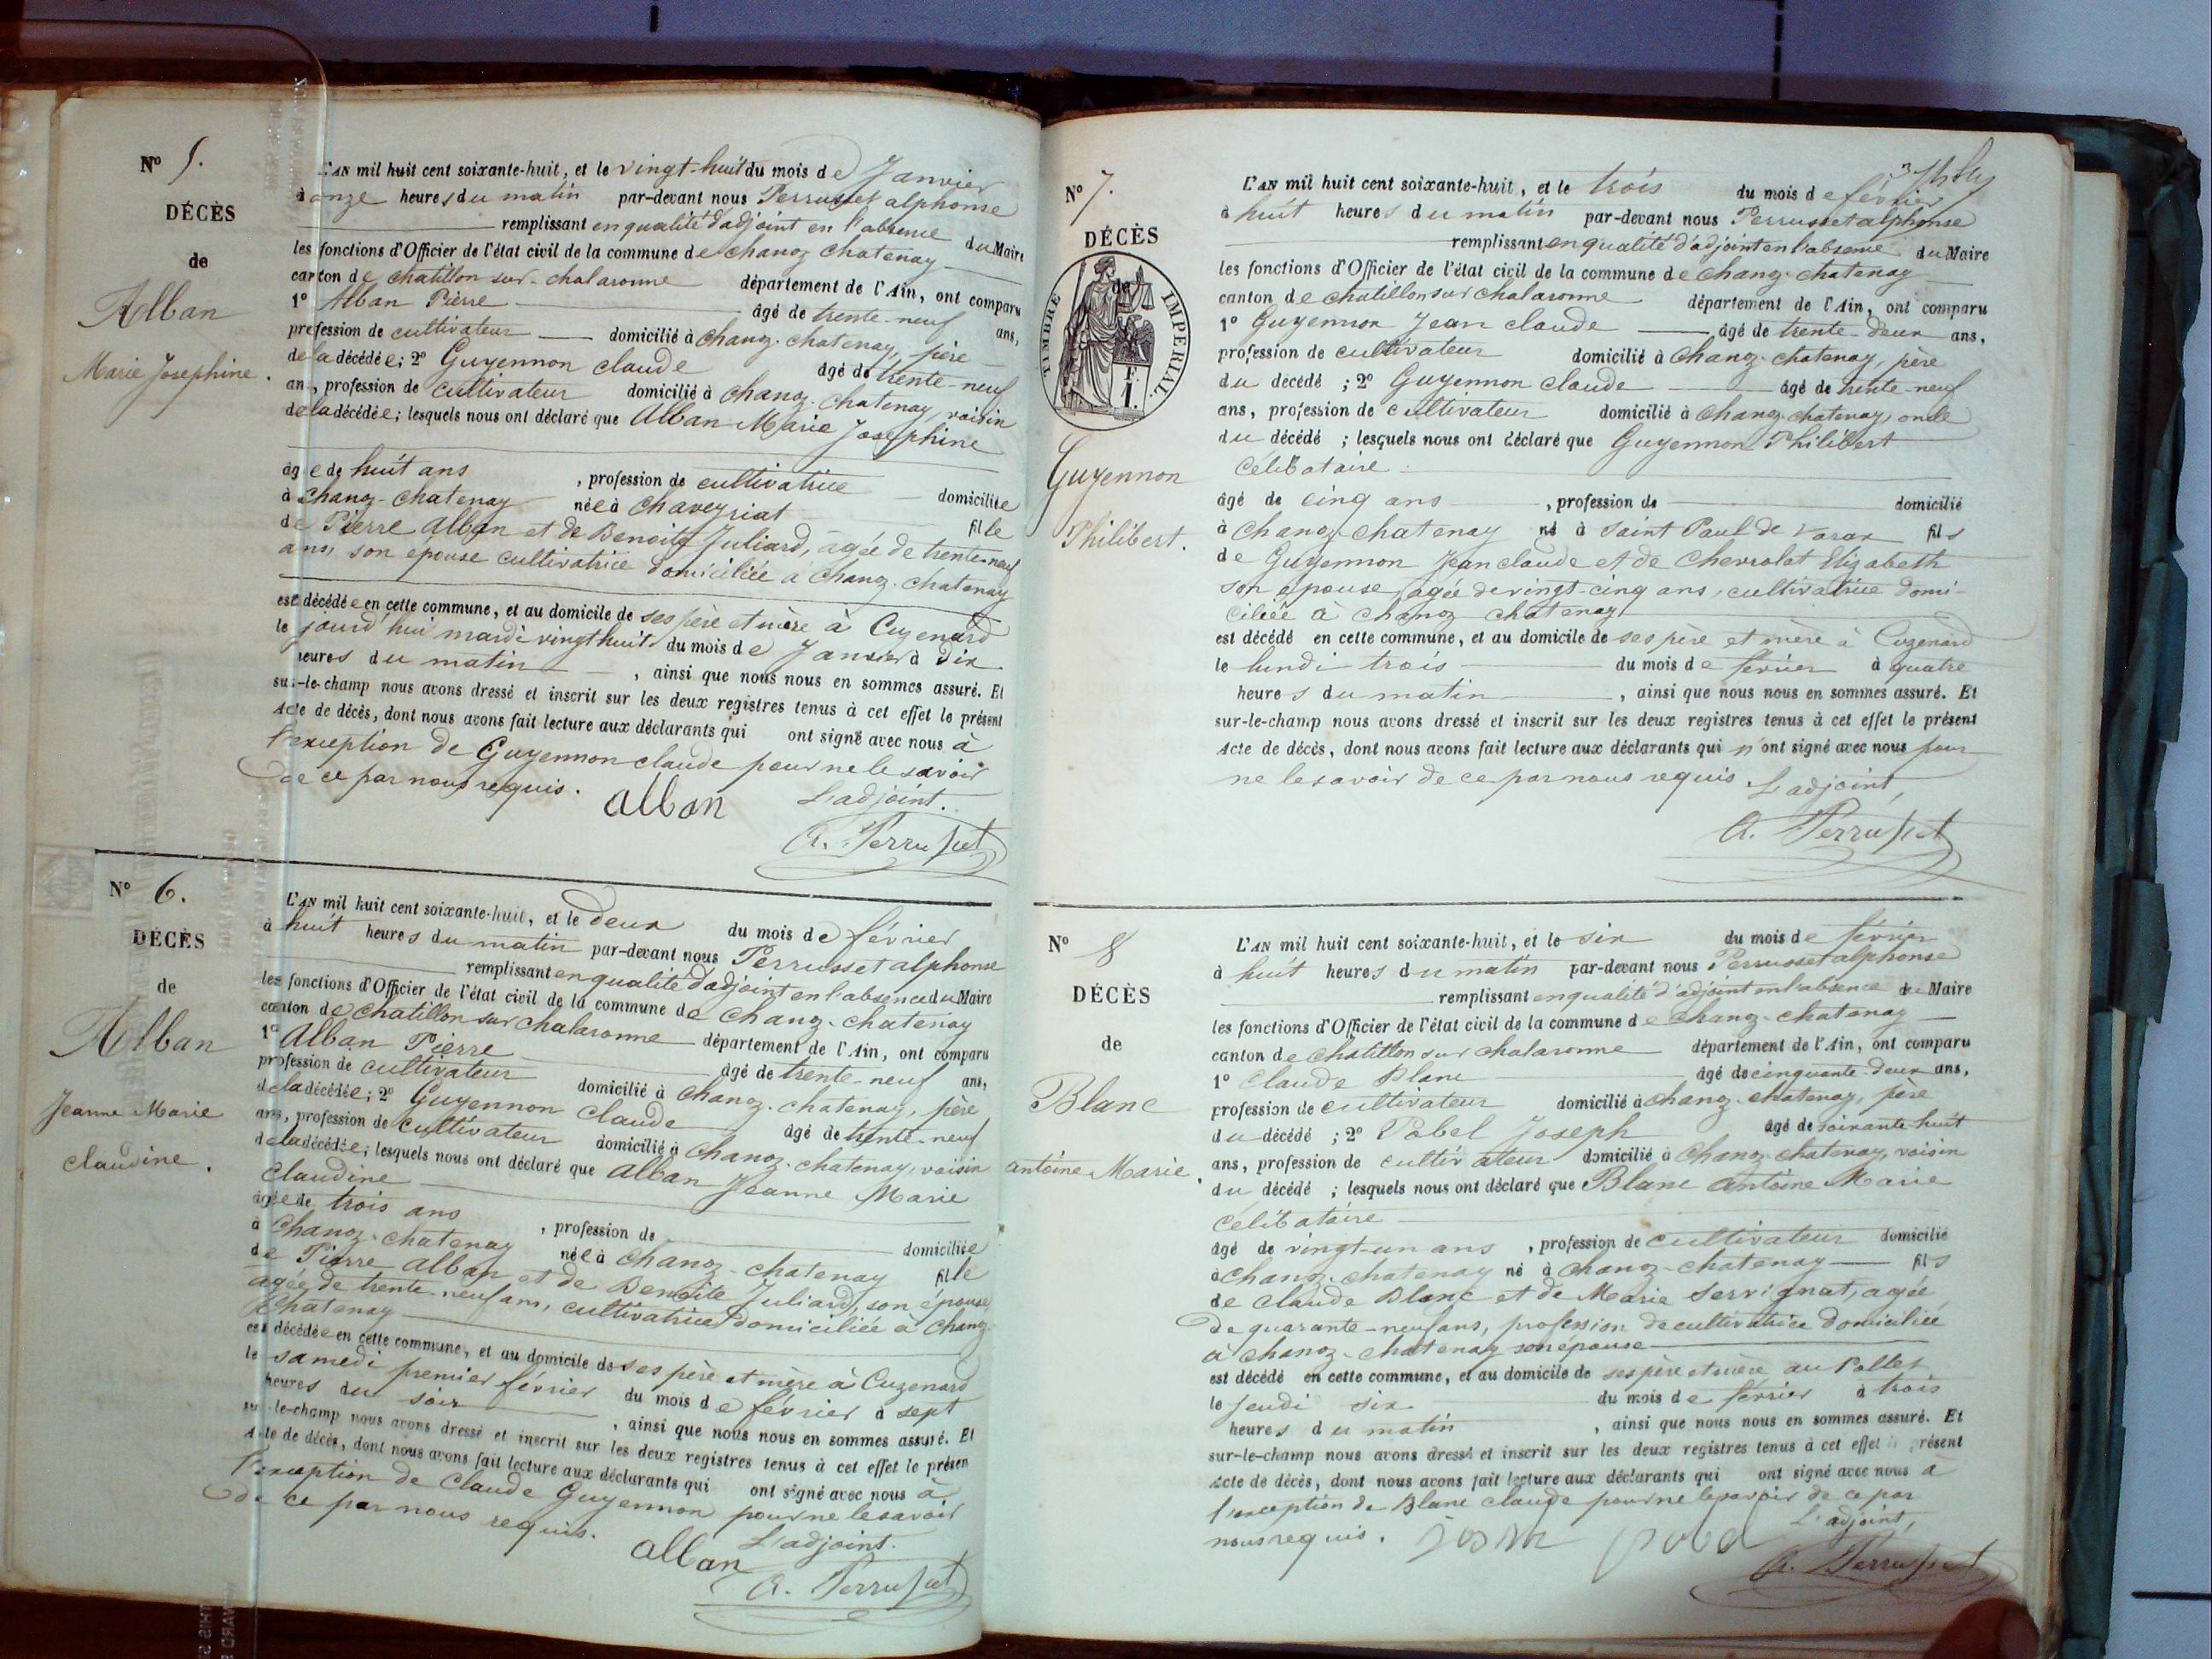 N° 5.
DÉCÈS
de
Alban
Marie Josephine.
L'AN mil huit cent soixante-huit, et le vingt-huit du mois de Janvier
à onze heures du matin par-devant nous Perrusset alphonse
remplissant en qualité d'adjoint en l'absence du Maire
les fonctions d'Officier de l'état civil de la commune de chanoz chatenay
canton de chatillon sur-chalaronne département de l'Ain, ont comparu
1° Alban Pierre âgé de trente-neuf ans,
profession de cultivateur domicilié à chanoz-chatenay, père
de la décédée; 2° Guyennon claude âgé de trente-neuf
ans, profession de cultivateur domicilié à chanoz-chatenay, voisin
de la décédée; lesquels nous ont déclaré que Alban Marie Josephine
âgée de huit ans, profession de cultivatrice domiciliée
à chanoz-chatenay née à chaveyriat fille
de Pierre Alban et de Benoite Juliard, âgée de trente-neuf
ans, son épouse cultivatrice domiciliée à chanoz-chatenay
est décédée en cette commune, et au domicile de ses père et mère à Cuzenard
le jourd'hui mardi vingt huit du mois de Janvier à dix
heures du matin, ainsi que nous nous en sommes assuré. Et
sur-le-champ nous avons dressé et inscrit sur les deux registres tenus à cet effet le présent
Acte de décès, dont nous avons fait lecture aux déclarants qui ont signé avec nous à
l'exception de Guyennon claude pour ne le savoir
de ce par nous requis.
alban L'adjoint.
A. Perrusset
N° 6.
DÉCÈS
de
Alban
Jeanne Marie
claudine.
L'AN mil huit cent soixante-huit, et le deux du mois de février
à huit heures du matin par-devant nous Perrusset alphonse
remplissant en qualité d'adjoint en l'absence du Maire
les fonctions d'Officier de l'état civil de la commune de chanoz-chatenay
canton de chatillon sur chalaronne département de l'Ain, ont comparu
1° Alban Pierre âgé de trente-neuf ans,
profession de cultivateur domicilié à chanoz-chatenay, père
de la décédée; 2° Guyennon claude âgé de trente-neuf
ans, profession de cultivateur domicilié à chanoz-chatenay, voisin
de la décédée; lesquels nous ont déclaré que Alban Jeanne Marie
claudine
âgée de trois ans, profession de domiciliée
à chanoz-chatenay née à chanoz-chatenay fille
de Pierre Alban et de Benoite Juliard, son épouse,
agée de trente-neuf ans, cultivatrice domiciliée à chanoz-
chatenay
est décédée en cette commune, et au domicile de ses père et mère à Cuzenard
le samedi premier février du mois de février à sept
heures du soir, ainsi que nous nous en sommes assuré. Et
sur-le-champ nous avons dressé et inscrit sur les deux registres tenus à cet effet le présen
Acte de décès, dont nous avons fait lecture aux déclarants qui ont signé avec nous à
l'exception de Claude Guyennon pour ne le savoir
de ce par nous requis.
alban L'adjoint.
A. Perrusset
N° 7.
DÉCÈS
de
TIMBRE IMPÉRIAL.
F.
1.
Guyennon
Philibert.
L'AN mil huit cent soixante-huit, et le trois du mois de février
à huit heures du matin par-devant nous Perrusset alphonse
remplissant en qualité d'adjoint en l'absence du Maire
les fonctions d'Officier de l'état civil de la commune de chanoz-chatenay
canton de chatillon sur chalaronne département de l'Ain, ont comparu
1° Guyennon Jean claude âgé de trente-deux ans,
profession de cultivateur domicilié à chanoz-chatenay, père
du décédé; 2° Guyennon claude âgé de trente-neuf
ans, profession de cultivateur domicilié à chanoz-chatenay, oncle
du décédé; lesquels nous ont déclaré que Guyennon Philibert
célibataire
âgé de cinq ans, profession de domicilié
à chanoz-chatenay né à saint Paul de Varax fils
de Guyennon Jean claude et de Chevrolat Elizabeth
son épouse, agée de vingt-cinq ans, cultivatrice domi-
ciliée à chanoz chatenay
est décédé en cette commune, et au domicile de ses père et mère à Cuzenard
le lundi trois du mois de février à quatre
heures du matin, ainsi que nous nous en sommes assuré. Et
sur-le-champ nous avons dressé et inscrit sur les deux registres tenus à cet effet le présent
Acte de décès, dont nous avons fait lecture aux déclarants qui n'ont signé avec nous pour
ne le savoir de ce par nous requis L'adjoint,
A. Perrusset
N° 8
DÉCÈS
de
Blanc
antoine Marie.
L'AN mil huit cent soixante-huit, et le six du mois de février
à huit heures du matin par-devant nous Perrusset alphonse
remplissant en qualité d'adjoint en l'absence du Maire
les fonctions d'Officier de l'état civil de la commune de chanoz-chatenay
canton de chatillon sur chalaronne département de l'Ain, ont comparu
1° claude Blanc âgé de cinquante-deux ans,
profession de cultivateur domicilié à chanoz-chatenay, père
du décédé; 2° Pobel Joseph âgé de soixante-huit
ans, profession de cultivateur domicilié à chanoz-chatenay, voisin
du décédé; lesquels nous ont déclaré que Blanc Antoine Marie
célibataire
âgé de vingt-un ans, profession de cultivateur domicilié
à chanoz-chatenay né à chanoz-chatenay fils
de claude Blanc et de Marie Servignat, agée
de quarante-neuf ans, profession de cultivatrice domiciliée
à chanoz-chatenay son épouse
est décédé en cette commune, et au domicile de ses père et mère au
le Jeudi six du mois de février à trois
heures du matin, ainsi que nous nous en sommes assuré. Et
sur-le-champ nous avons dressé et inscrit sur les deux registres tenus à cet effet le présent
Acte de décès, dont nous avons fait lecture aux déclarants qui ont signé avec nous à
l'exception de Blanc claude pour ne le savoir de ce par
nous requis. L'adjoint,
A. Perrusset